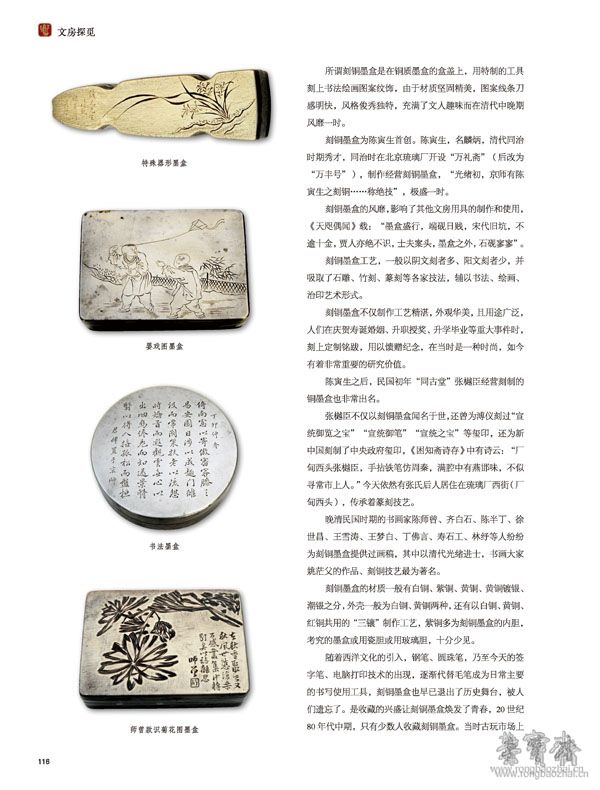 文房探觅
特殊器形墨盒
婴戏图墨盒
书法墨盒
师曾款识菊花图墨盒
所谓刻铜墨盒是在铜质墨盒的盒盖上，用特制的工具
刻上书法绘画图案纹饰，由于材质坚固精美，图案线条刀
感明快，风格俊秀独特，充满了文人趣味而在清代中晚期
风靡一时。
刻铜墨盒为陈寅生首创。陈寅生，名麟炳，清代同治
时期秀才，同治时在北京琉璃厂开设“万礼斋”（后改为
“万丰号”），制作经营刻铜墨盒，“光绪初，京师有陈
寅生之刻铜……称绝技”，极盛一时。
刻铜墨盒的风靡，影响了其他文房用具的制作和使用，
《天咫偶闻》载：“墨盒盛行，端砚日贱，宋代旧坑，不
逾十金，贾人亦绝不识，士夫案头，墨盒之外，石砚寥寥”。
刻铜墨盒工艺，一般以阴文刻者多、阳文刻者少，并
吸取了石雕、竹刻、篆刻等各家技法，辅以书法、绘画、
治印艺术形式。
刻铜墨盒不仅制作工艺精湛，外观华美，且用途广泛，
人们在庆贺寿诞婚姻、升职授奖、升学毕业等重大事件时，
刻上定制铭跋，用以馈赠纪念，在当时是一种时尚，如今
有着非常重要的研究价值。
陈寅生之后，民国初年“同古堂”张樾臣经营刻制的
铜墨盒也非常出名。
张樾臣不仅以刻铜墨盒闻名于世，还曾为溥仪刻过“宣
统御览之宝”“宣统御笔”“宣统之宝”等玺印，还为新
中国刻制了中央政府玺印，《因知斋诗存》中有诗云：“厂
甸西头张樾臣，手拈铁笔仿周秦，满腔中有燕邯味，不似
寻常市上人。”今天依然有张氏后人居住在琉璃厂西街（厂
甸西头），传承着篆刻技艺。
晚清民国时期的书画家陈师曾、齐白石、陈半丁、徐
世昌、王雪涛、王梦白、丁佛言、寿石工、林纾等人纷纷
为刻铜墨盒提供过画稿，其中以清代光绪进士，书画大家
姚茫父的作品、刻铜技艺最为著名。
刻铜墨盒的材质一般有白铜、紫铜、黄铜、黄铜镀银、
潮银之分，外壳一般为白铜、黄铜两种，还有以白铜、黄铜、
红铜共用的“三镶”制作工艺，紫铜多为刻铜墨盒的内胆，
考究的墨盒或用瓷胆或用玻璃胆，十分少见。
随着西洋文化的引入，钢笔、圆珠笔，乃至今天的签
字笔、电脑打印技术的出现，逐渐代替毛笔成为日常主要
的书写使用工具，刻铜墨盒也早已退出了历史舞台，被人
们遗忘了。是收藏的兴盛让刻铜墨盒焕发了青春，20世纪
80年代中期，只有少数人收藏刻铜墨盒。当时古玩市场上
116
荣宝斋
www.rongbaozhai.cn